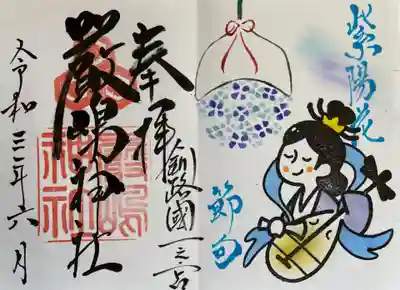 紫陽花
節句
奉拝
釧路國一之宮
厳島神社
令和三年六月
厳嶋
神社